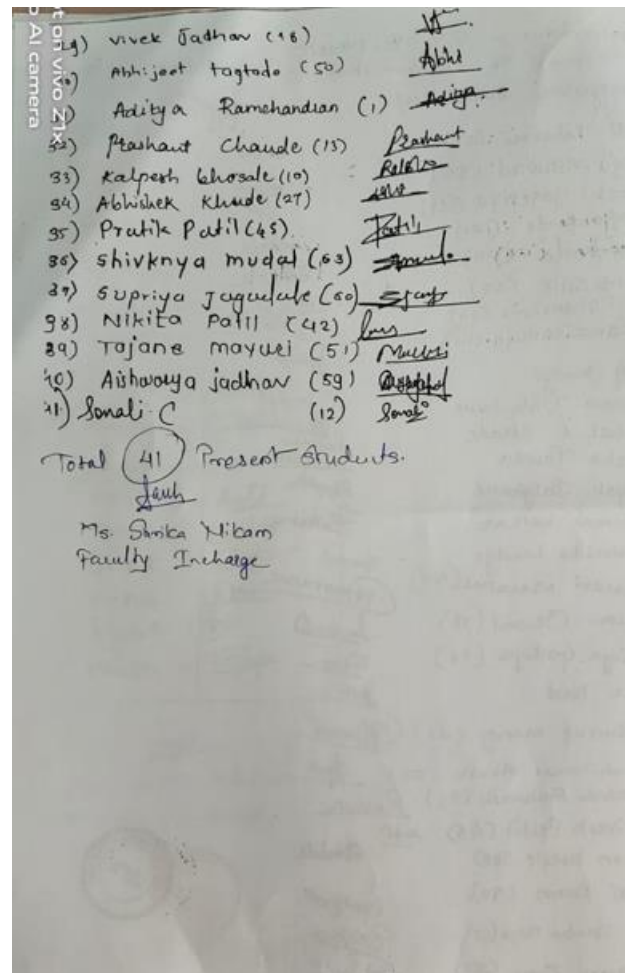 t on vivo Z1x
AI camera
29) vivek Jadhav (16)
Abhijeet tagtode (50) Abhi
Aditya Ramchandran (1) Aditya
32) Prashant Chaude (13) Prashant
33) Kalpesh bhosale (10)
34) Abhishek Khude (27)
35) Pratik Patil (45) Patil
36) Shivknya mudal (63)
37) Supriya Jagadale (60)
38) Nikita Patil (42)
39) Tajane mayuri (51) Mayuri
40) Aishwarya jadhav (59)
41) Sonali C (12) Sonali
Total 41 Present Students.
Ms. Shrika Nikam
Faculty Incharge